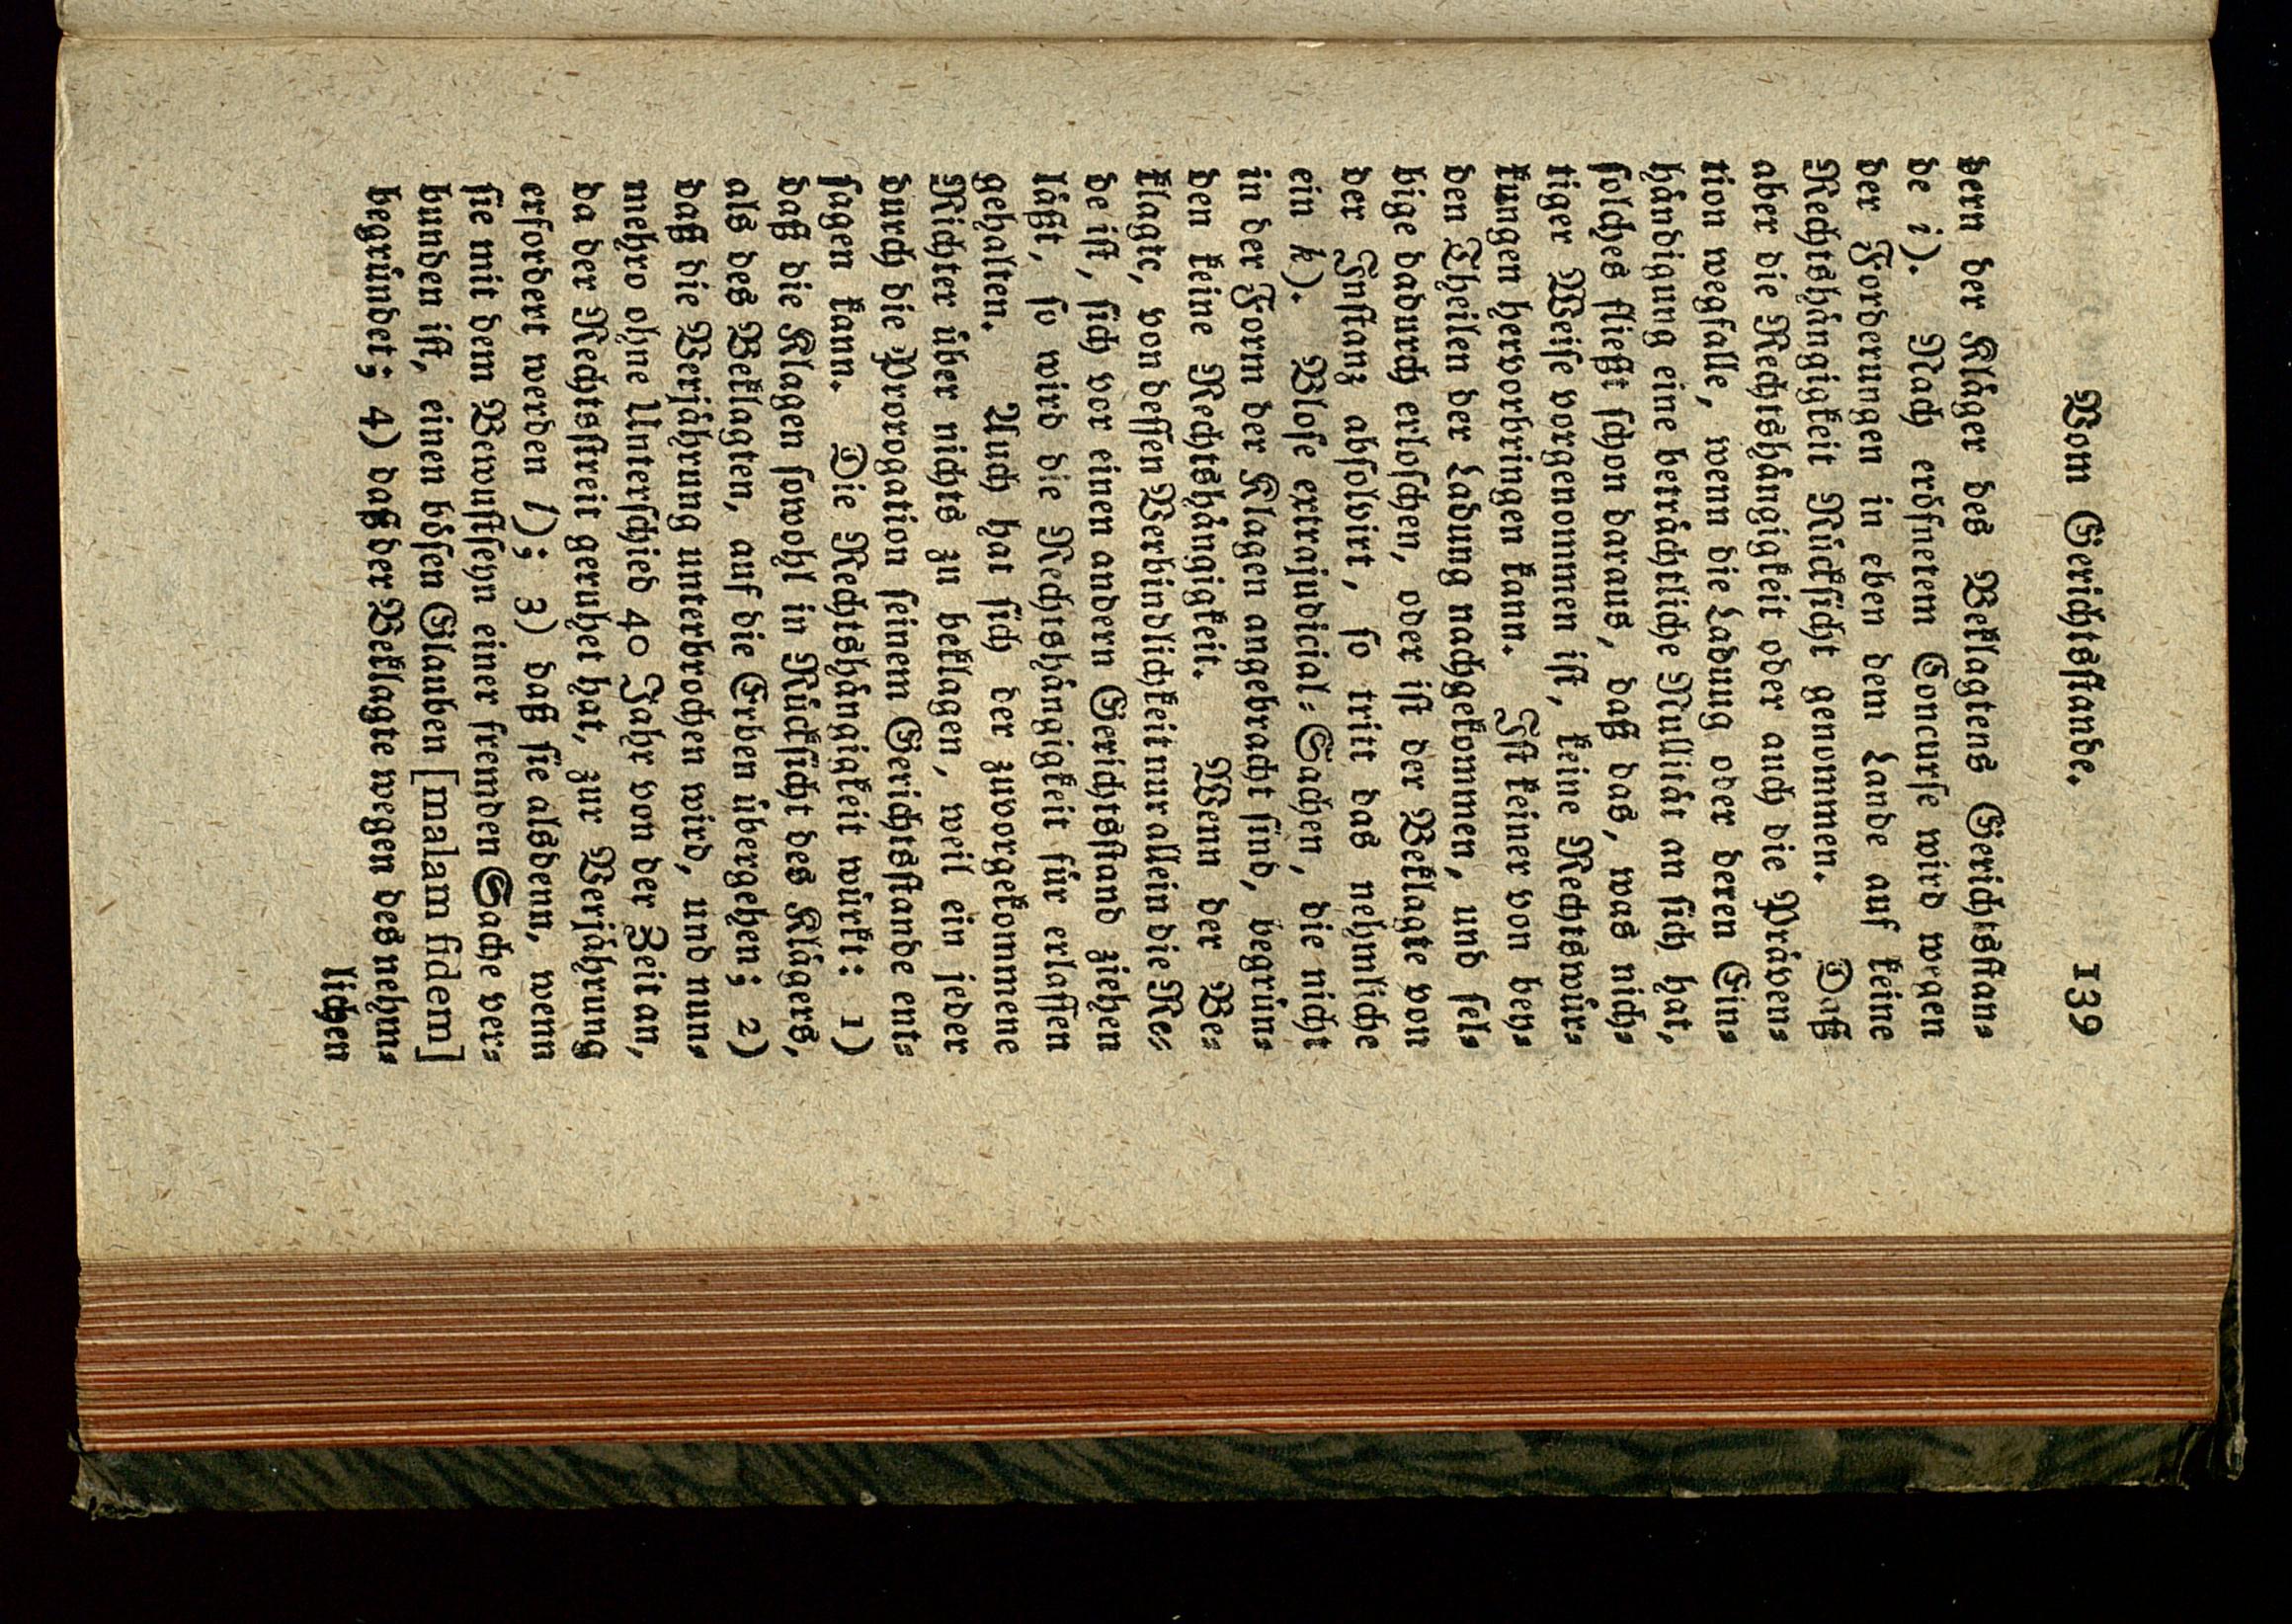 Vom Gerichtsstande. 139
dern der Kläger des Beklagtens Gerichtsstan-
de i). Nach eröfnetem Concurse wird wegen
der Forderungen in eben dem Lande auf keine
Rechtshängigkeit Rücksicht genommen. Daß
aber die Rechtshängigkeit oder auch die Präven-
tion wegfalle, wenn die Ladung oder deren Ein-
händigung eine beträchtliche Nullität an sich hat,
solches fließt schon daraus, daß das, was nich-
tiger Weise vorgenommen ist, keine Rechtswür-
kungen hervorbringen kann. Ist keiner von bey-
den Theilen der Ladung nachgekommen, und sel-
bige dadurch erloschen, oder ist der Beklagte von
der Instanz absolvirt, so tritt das nehmliche
ein k). Blose extrajudicial-Sachen, die nicht
in der Form der Klagen angebracht sind, begrün-
den keine Rechtshängigkeit. Wenn der Be-
klagte, von dessen Verbindlichkeit nur allein die Re-
de ist, sich vor einen andern Gerichtsstand ziehen
läßt, so wird die Rechtshängigkeit für erlassen
gehalten. Auch hat sich der zuvorgekommene
Richter über nichts zu beklagen, weil ein jeder
durch die Prorogation seinem Gerichtsstande ent-
sagen kann. Die Rechtshängigkeit würkt: 1)
daß die Klagen sowohl in Rücksicht des Klägers,
als des Beklagten, auf die Erben übergehen; 2)
daß die Verjährung unterbrochen wird, und nun-
mehro ohne Unterschied 40 Jahr von der Zeit an,
da der Rechtsstreit geruhet hat, zur Verjährung
erfordert werden l); 3) daß sie alsdenn, wenn
sie mit dem Bewustseyn einer fremden Sache ver-
bunden ist, einen bösen Glauben [malam fidem]
begründet; 4) daß der Beklagte wegen des nehm-
lichen